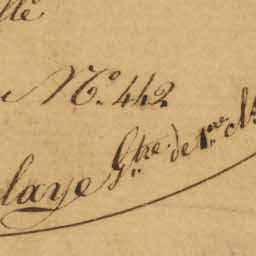 llé
N.º 442
laye G.tre de 1.re cl